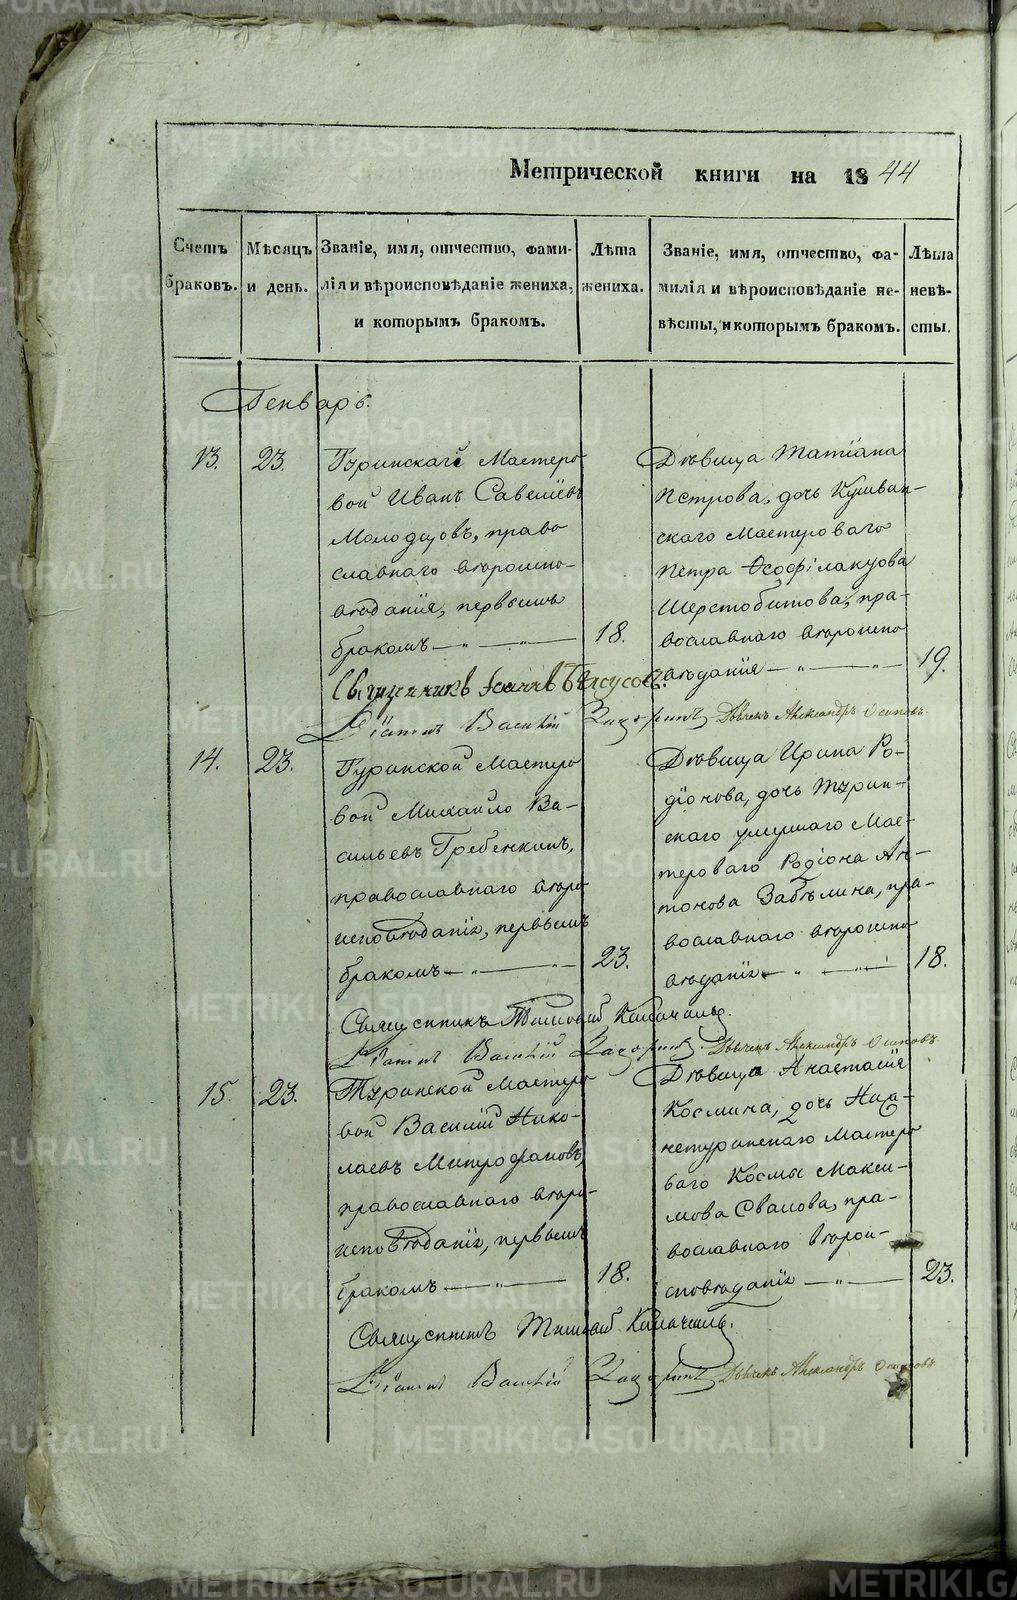 Метрической книги на 1844
Счетъ браковъ.
Мѣсяцъ и день.
Званіе, имя, отчество, фами-
лія и вѣроисповѣданіе жениха,
и которымъ бракомъ.
Лѣта жениха.
Званіе, имя, отчество, фа-
милія и вѣроисповѣданіе не-
вѣсты, и которымъ бракомъ.
Лѣта невѣ-
сты.
Генварь.
13.
23.
Туринскаго Мастеро
вой Иванъ Савелiевъ
Молодцовъ, право
славнаго вѣроиспо-
вѣданiя, первымъ
бракомъ — „ —
18.
Дѣвица Татiана
Петрова, дочь Кушвин-
скаго Мастероваго
Петра Ѳеофiлактова
Шерстобитова, пра-
вославнаго вѣроиспо
вѣданiя — „ —
19.
Священникъ Iоаннъ
Дiаконъ Василiй Дьячекъ Александръ Осиповъ
14.
23.
Туринской Мастеро
вой Михайло Ва-
сильевъ Гребенкинъ,
православнаго вѣро
исповѣданiя, первымъ
бракомъ — „ —
23.
Дѣвица Ирина Ро-
дiонова, дочь Турин-
скаго умершаго Мас-
тероваго Родiона Ан-
тонова Забѣлина, пра-
вославнаго вѣроиспо
вѣданiя — „ —
18.
Священникъ Тимофей
Дiаконъ Василiй Дьячекъ Александръ Осиповъ
15.
23.
Туринской Мастеро
вой Василiй Нико-
лаевъ Митрофановъ,
православнаго вѣро-
исповѣданiя, первымъ
бракомъ — „ —
18.
Дѣвица Анастасiя
Космина, дочь Ниж-
нетуринскаго Мастеро
ваго Космы Макси-
мова Свалова, пра-
вославнаго вѣрои-
сповѣданiя — „ —
23.
Священникъ Тимофей
Дiаконъ Василiй Дьячекъ Александръ Осиповъ
METRIKI.GASO-URAL.RU